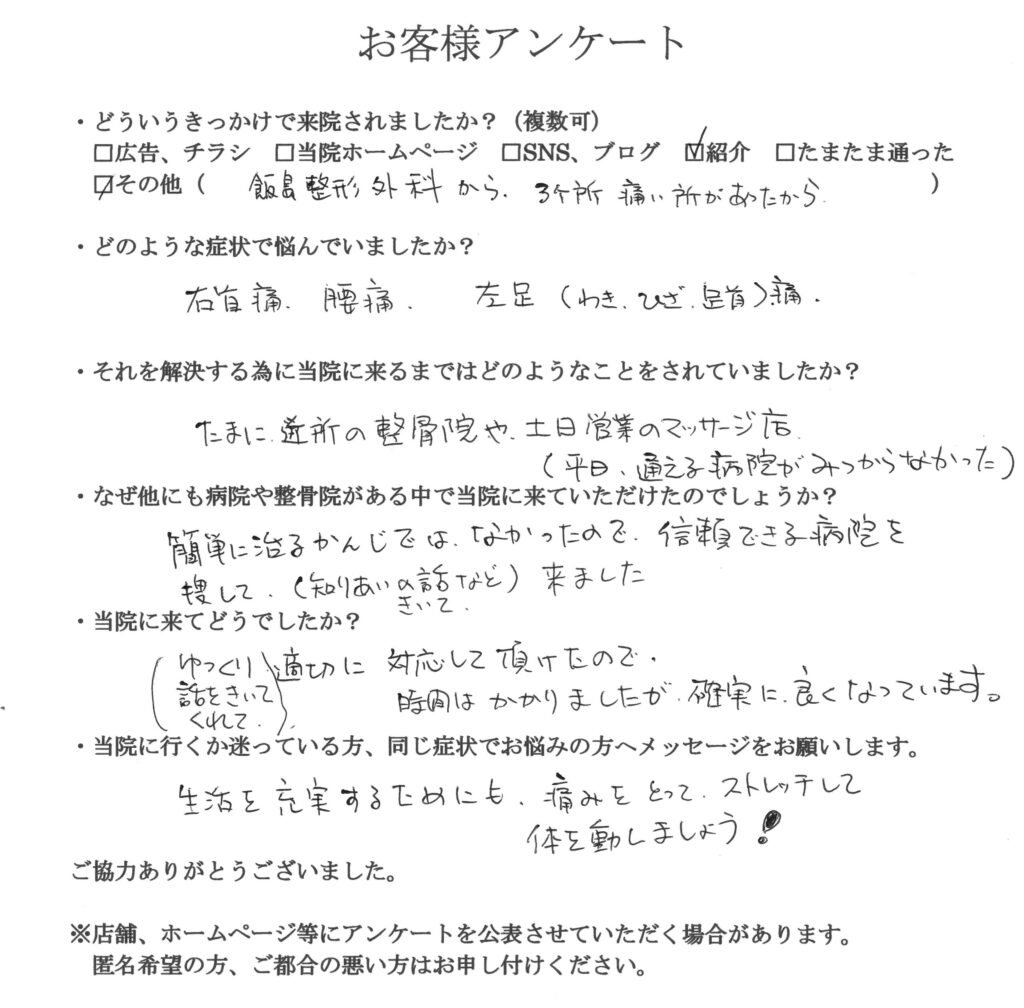 お客様アンケート
・どういうきっかけで来院されましたか？（複数可）
□広告、チラシ　□当院ホームページ　□SNS、ブログ　☑紹介　□たまたま通った
☑その他（　飯島整形外科から、3ケ所痛い所があったから　）
・どのような症状で悩んでいましたか？
右首痛、腰痛、　左足（わき、ひざ、足首）痛、
・それを解決する為に当院に来るまではどのようなことをされていましたか？
たまに、近所の整骨院や、土日営業のマッサージ店
（平日、通える病院がみつからなかった）
・なぜ他にも病院や整骨院がある中で当院に来ていただけたのでしょうか？
簡単に治るかんじでは、なかったので、信頼できる病院を
捜して、（知りあいの話など）来ました
きいて、
・当院に来てどうでしたか？
（ゆっくり話をきいてくれて、）適切に　対応して頂けたので、
時間はかかりましたが、確実に、良くなっています。
・当院に行くか迷っている方、同じ症状でお悩みの方へメッセージをお願いします。
生活を充実するためにも、痛みをとって、ストレッチして
体を動しましょう！
ご協力ありがとうございました。
※店舗、ホームページ等にアンケートを公表させていただく場合があります。
匿名希望の方、ご都合の悪い方はお申し付けください。